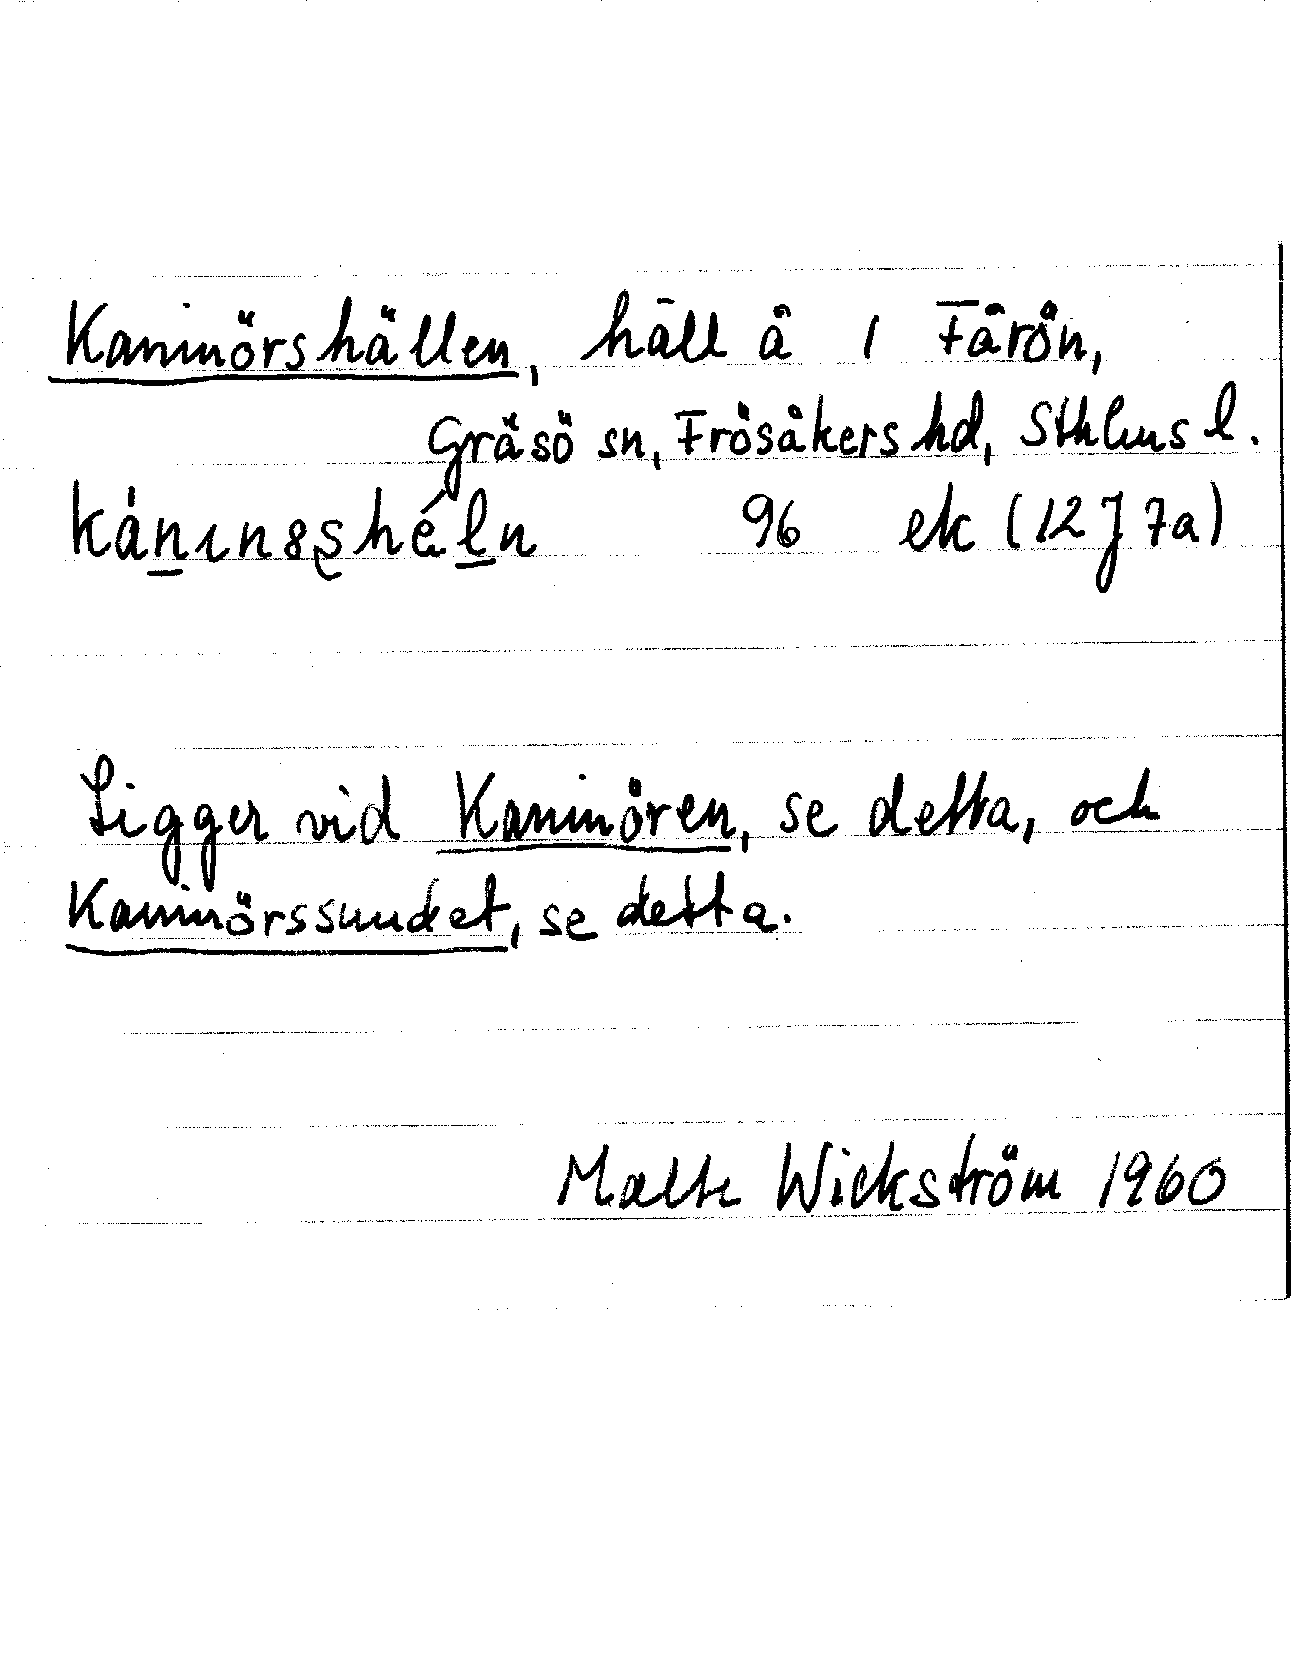 Kaninörshällen, häll å 1 Fårön,
Gräsö sn, Frösåkers hd, Sthlms l.
96 ek (12 J 7a)
Ligger vid Kaninören, se detta, och
Kaninörssundet, se detta.
Malte Wickström 1960